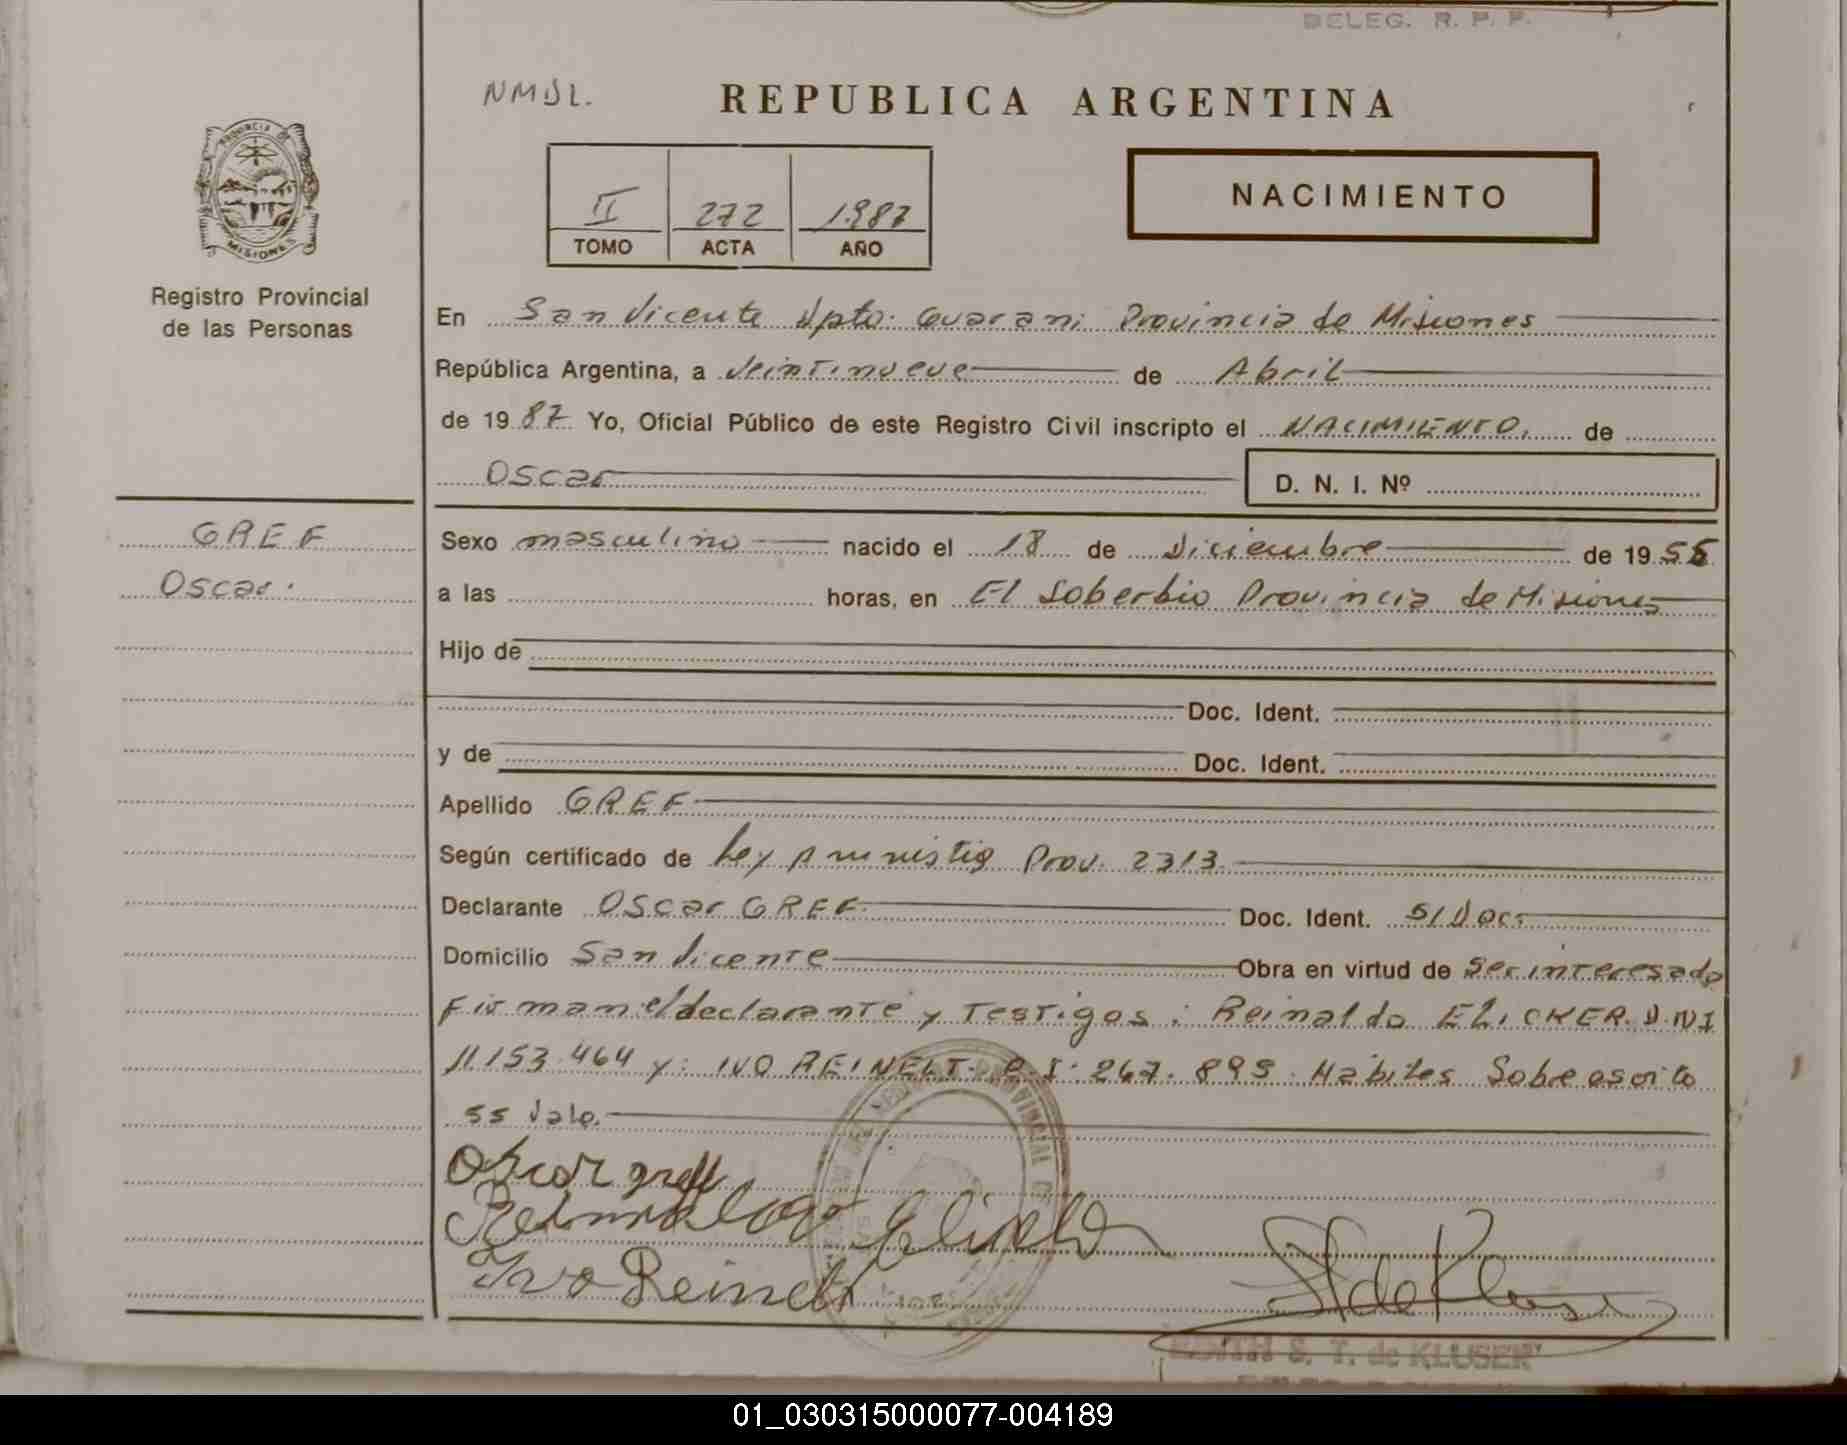 DELEG. R. P. P.
NMSL.
REPUBLICA ARGENTINA
PROVINCIA DE
MISIONES
II 272 1.987
TOMO ACTA AÑO
NACIMIENTO
Registro Provincial
de las Personas
En San Vicente Dpto. Guarani Provincia de Misiones
República Argentina, a Veintinueve de Abril
de 19 87 Yo, Oficial Público de este Registro Civil inscripto el NACIMIENTO. de
Oscar D. N. I. Nº
GREF
Oscar.
Sexo masculino nacido el 18 de Diciembre de 19 55
a las horas, en El Soberbio Provincia de Misiones
Hijo de
Doc. Ident.
y de Doc. Ident.
Apellido GREF
Según certificado de Ley Amnistia Prov. 2313.
Declarante Oscar GREF Doc. Ident. S/Docs
Domicilio San Vicente Obra en virtud de Ser interesado
Firman el declarante y Testigos: Reinaldo ELICKER. D.NI
11.153.464 y: IVO REINELT. C.I: 267.895. Habiles Sobre escrito
55 Vale.
Oscar greff
Ivo Reinelt
EDITH S. T. de KLUSER
01_030315000077-004189